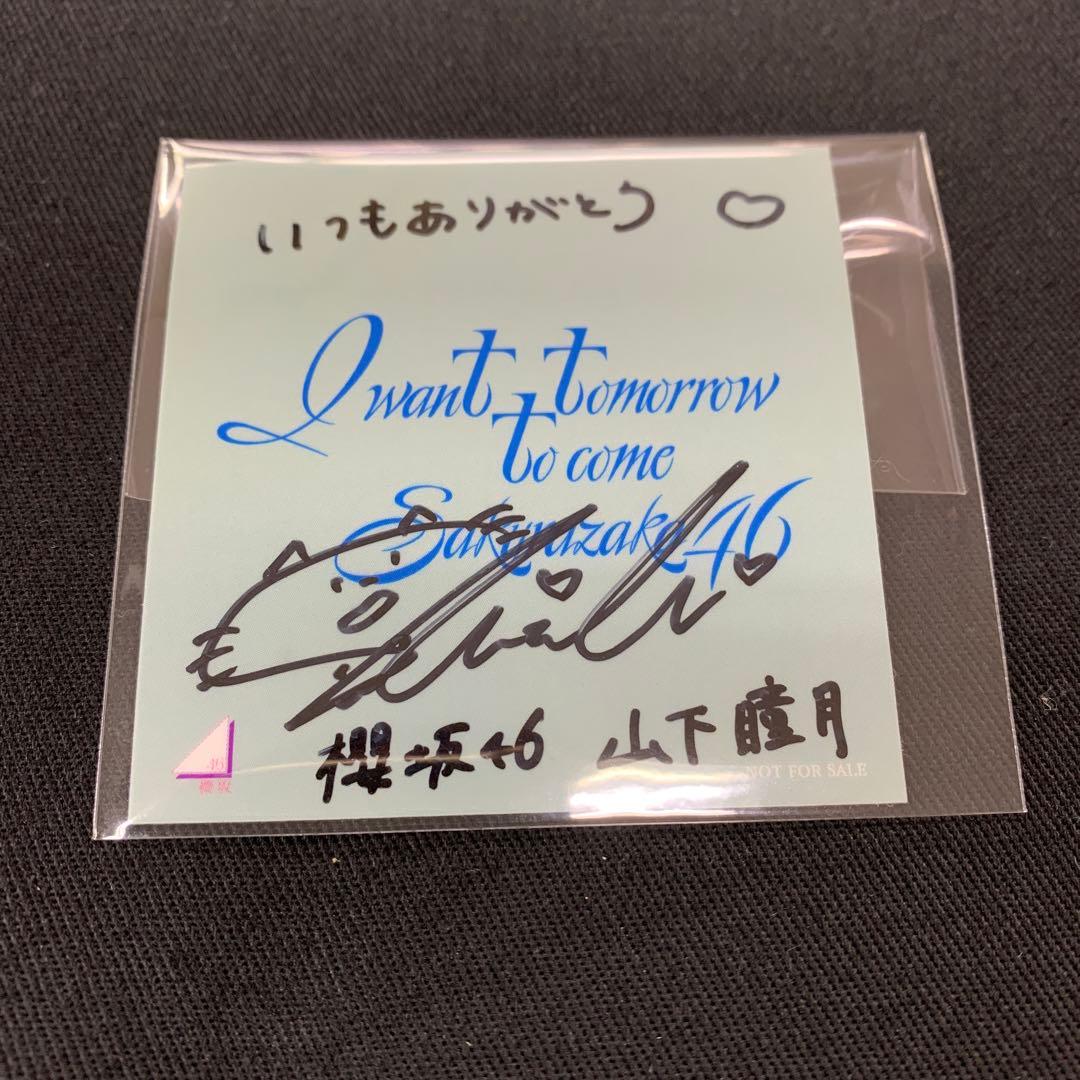 いつもありがとう ♡
I want tomorrow
to come
Sakurazaka46
櫻坂46 山下瞳月
46
櫻坂
NOT FOR SALE